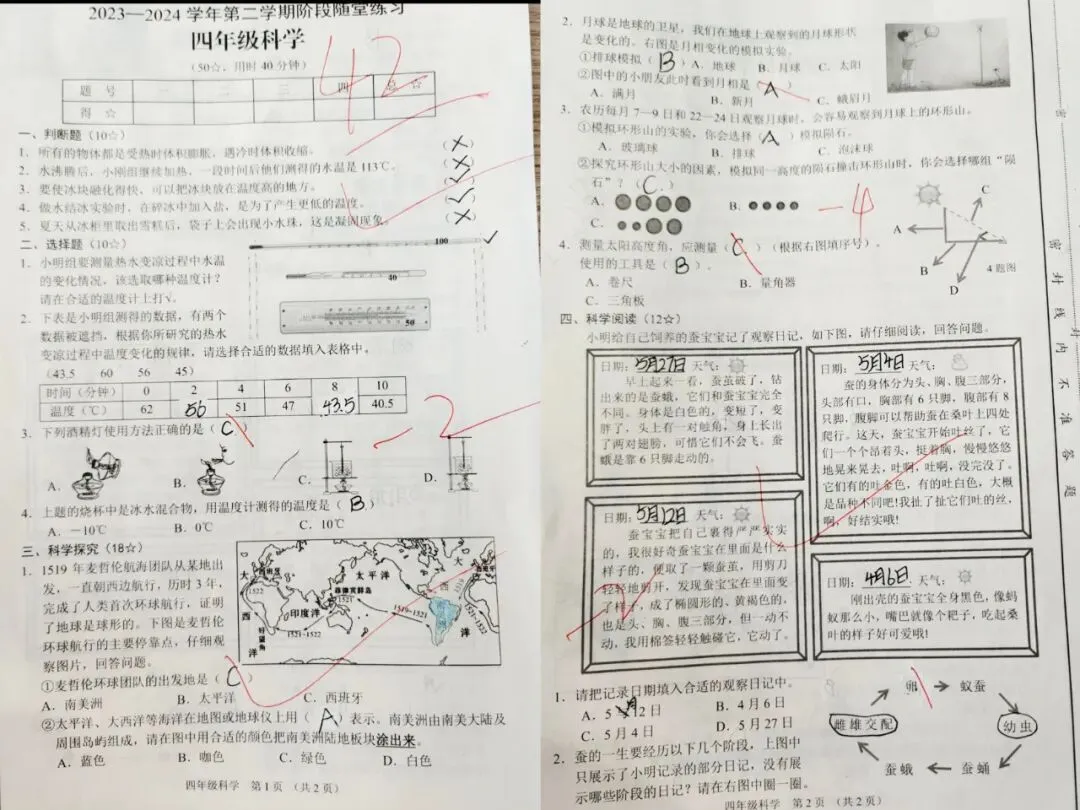 2023—2024 学年第二学期阶段随堂练习
四年级科学
（50☆，用时 40 分钟）
题 号 一 二 三 四 总 ☆
得 ☆
42
一、判断题（10☆）
1、所有的物体都是受热时体积膨胀，遇冷时体积收缩。 （×）
2、水沸腾后，小刚组继续加热，一段时间后他们测得的水温是 113℃。 （×）
3、要使冰块融化得快，可以把冰块放在温度高的地方。 （✓）
4、做水结冰实验时，在碎冰中加入盐，是为了产生更低的温度。 （✓）
5、夏天从冰柜里取出雪糕后，袋子上会出现小水珠，这是凝固现象。 （×）
二、选择题（10☆）
1、小明组要测量热水变凉过程中水温
的变化情况，该选取哪种温度计？
请在合适的温度计上打√。
100 ✓
40
50
2、下表是小明组测得的数据，有两个
数据被遮挡，根据你所研究的热水
变凉过程中温度变化的规律，请选择合适的数据填入表格中。
（43.5 60 56 45）
时间（分钟） 0 2 4 6 8 10
温度（℃） 62 56 51 47 43.5 40.5
3、下列酒精灯使用方法正确的是（ C ）
-2
A. B. C. D.
4、上题的烧杯中是冰水混合物，用温度计测得的温度是（ B ）
A．－10℃ B．0℃ C．10℃
三、科学探究（18☆）
1、1519 年麦哲伦航海团队从某地出
发，一直朝西边航行，历时 3 年，
完成了人类首次环球航行，证明
了地球是球形的。下图是麦哲伦
环球航行的主要停靠点，仔细观
察图片，回答问题。
大
西
洋
1522
印度洋
好望角
1521-1522
太平洋
菲律宾群岛
1521
1519-1521
大
西
洋
①麦哲伦环球团队的出发地是（ C ）
A．南美洲 B．太平洋 C．西班牙
②太平洋、大西洋等海洋在地图或地球仪上用（ A ）表示。南美洲由南美大陆及
周围岛屿组成，请在图中用合适的颜色把南美洲陆地板块涂出来。
A．蓝色 B．咖色 C．绿色 D．白色
四年级科学 第 1 页 （共 2 页）
2．月球是地球的卫星，我们在地球上观察到的月球形状
是变化的。右图是月相变化的模拟实验。
①排球模拟（ B ）A．地球 B．月球 C．太阳
②图中的小朋友此时看到月相是（ A ）
A．满月 B．新月 C．蛾眉月
3．农历每月 7—9 日和 22—24 日观察月球时，会容易观察到月球上的环形山。
①模拟环形山的实验，你会选择（ A ）模拟陨石。
A．玻璃球 B．排球 C．泡沫球
②探究环形山大小的因素，模拟同一高度的陨石撞击环形山时，你会选择哪组“陨
石”？（ C ）
A． B．
C．
-4
4．测量太阳高度角，应测量（ C ）（根据右图填序号），
使用的工具是（ B ）。
A．卷尺 B．量角器
C．三角板
A
B
C
D
4 题图
四、科学阅读（12☆）
小明给自己饲养的蚕宝宝记了观察日记，如下图，请仔细阅读，回答问题。
日期：5月27日 天气：
早上起来一看，蚕茧破了，钻
出来的是蚕蛾，它们和蚕宝宝完全
不同。身体是白色的，变短了，变
胖了，头上有一对触角，身上长出
了两对翅膀，可惜它们不会飞。蚕
蛾是靠 6 只脚走动的。
日期：5月4日 天气：
蚕的身体分为头、胸、腹三部分，
头部有口，胸部有 6 只脚，腹部有 8
只脚，腹脚可以帮助蚕在桑叶上四处
爬行。这天，蚕宝宝开始吐丝了，它
们一个个昂着头，挺着胸，慢慢悠悠
地晃来晃去，吐啊，吐啊，没完没了。
它们有的吐金色，有的吐白色，大概
是品种不同吧！我扯了扯它们吐的丝，
啊，好结实哦！
日期：5月12日 天气：
蚕宝宝把自己裹得严严实实
的，我很好奇蚕宝宝在里面是什么
样子的，便取了一颗蚕茧，用剪刀
轻轻地剪开，发现蚕宝宝在里面变
了样子，成了椭圆形的、黄褐色的，
也是头、胸、腹三部分，但一动不
动，我用棉签轻轻触碰它，它动了。
-2
日期：4月6日 天气：
刚出壳的蚕宝宝全身黑色，像蚂
蚁那么小，嘴巴就像个耙子，吃起桑
叶的样子好可爱哦！
1．请把记录日期填入合适的观察日记中。
A．5 月 12 日 B．4 月 6 日
C．5 月 4 日 D．5 月 27 日
2．蚕的一生要经历以下几个阶段，上图中
只展示了小明记录的部分日记，没有展
示哪些阶段的日记？请在右图中圈一圈。
卵 蚁蚕
雌雄交配 幼虫
蚕蛾 蚕蛹
四年级科学 第 2 页 （共 2 页）
密 封 线 内 不 准 答 题